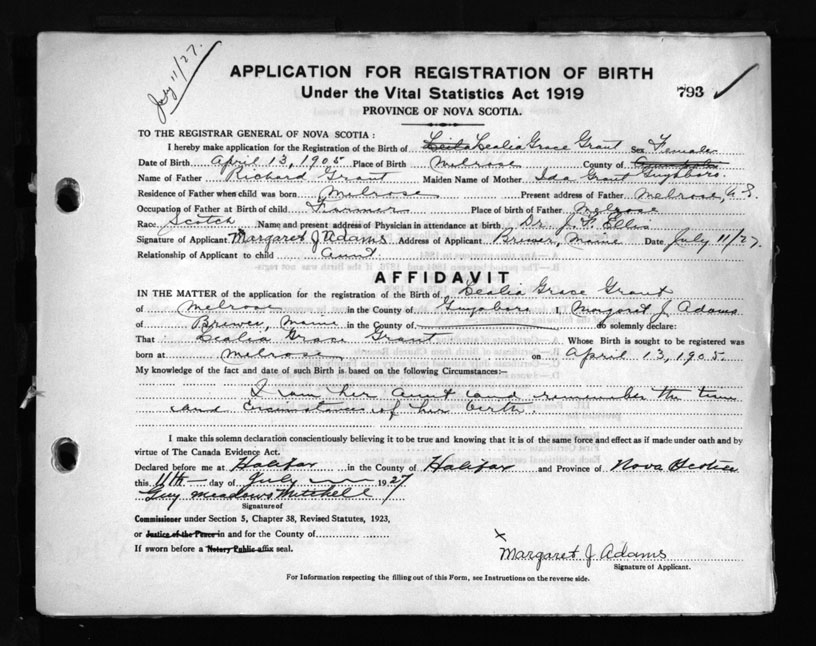 July 11/27.
APPLICATION FOR REGISTRATION OF BIRTH
Under the Vital Statistics Act 1919
793
PROVINCE OF NOVA SCOTIA.
TO THE REGISTRAR GENERAL OF NOVA SCOTIA :
I hereby make application for the Registration of the Birth of Lealia Grace Grant Sex Female
Date of Birth April 13, 1905 Place of Birth Melrose County of
Name of Father Richard Grant Maiden Name of Mother Ida Grant Guysboro.
Residence of Father when child was born Melrose Present address of Father Melrose,
Occupation of Father at Birth of child Farmer Place of birth of Father Melrose
Race Scotch Name and present address of Physician in attendance at birth Dr. J. F. Ellis
Signature of Applicant Margaret J Adams Address of Applicant Brewer, Maine Date July 11/27.
Relationship of Applicant to child aunt
AFFIDAVIT
IN THE MATTER of the application for the registration of the Birth of Lealia Grace Grant
of Melrose in the County of Guysboro I, Margaret J. Adams
of Brewer, Maine in the County of do solemnly declare:
That Lealia Grace Grant Whose Birth is sought to be registered was
born at Melrose on April 13, 1905.
My knowledge of the fact and date of such Birth is based on the following Circumstances:—
I am her aunt and remember the time
and circumstances of her birth.
I make this solemn declaration conscientiously believing it to be true and knowing that it is of the same force and effect as if made under oath and by
virtue of The Canada Evidence Act.
Declared before me at Halifax in the County of Halifax and Province of Nova Scotia
this 11th day of July 1927
Guy Meadows Mitchell
Signature of
Commissioner under Section 5, Chapter 38, Revised Statutes, 1923,
or Justice of the Peace in and for the County of
If sworn before a Notary Public affix seal.
x Margaret J Adams
Signature of Applicant.
For Information respecting the filling out of this Form, see Instructions on the reverse side.